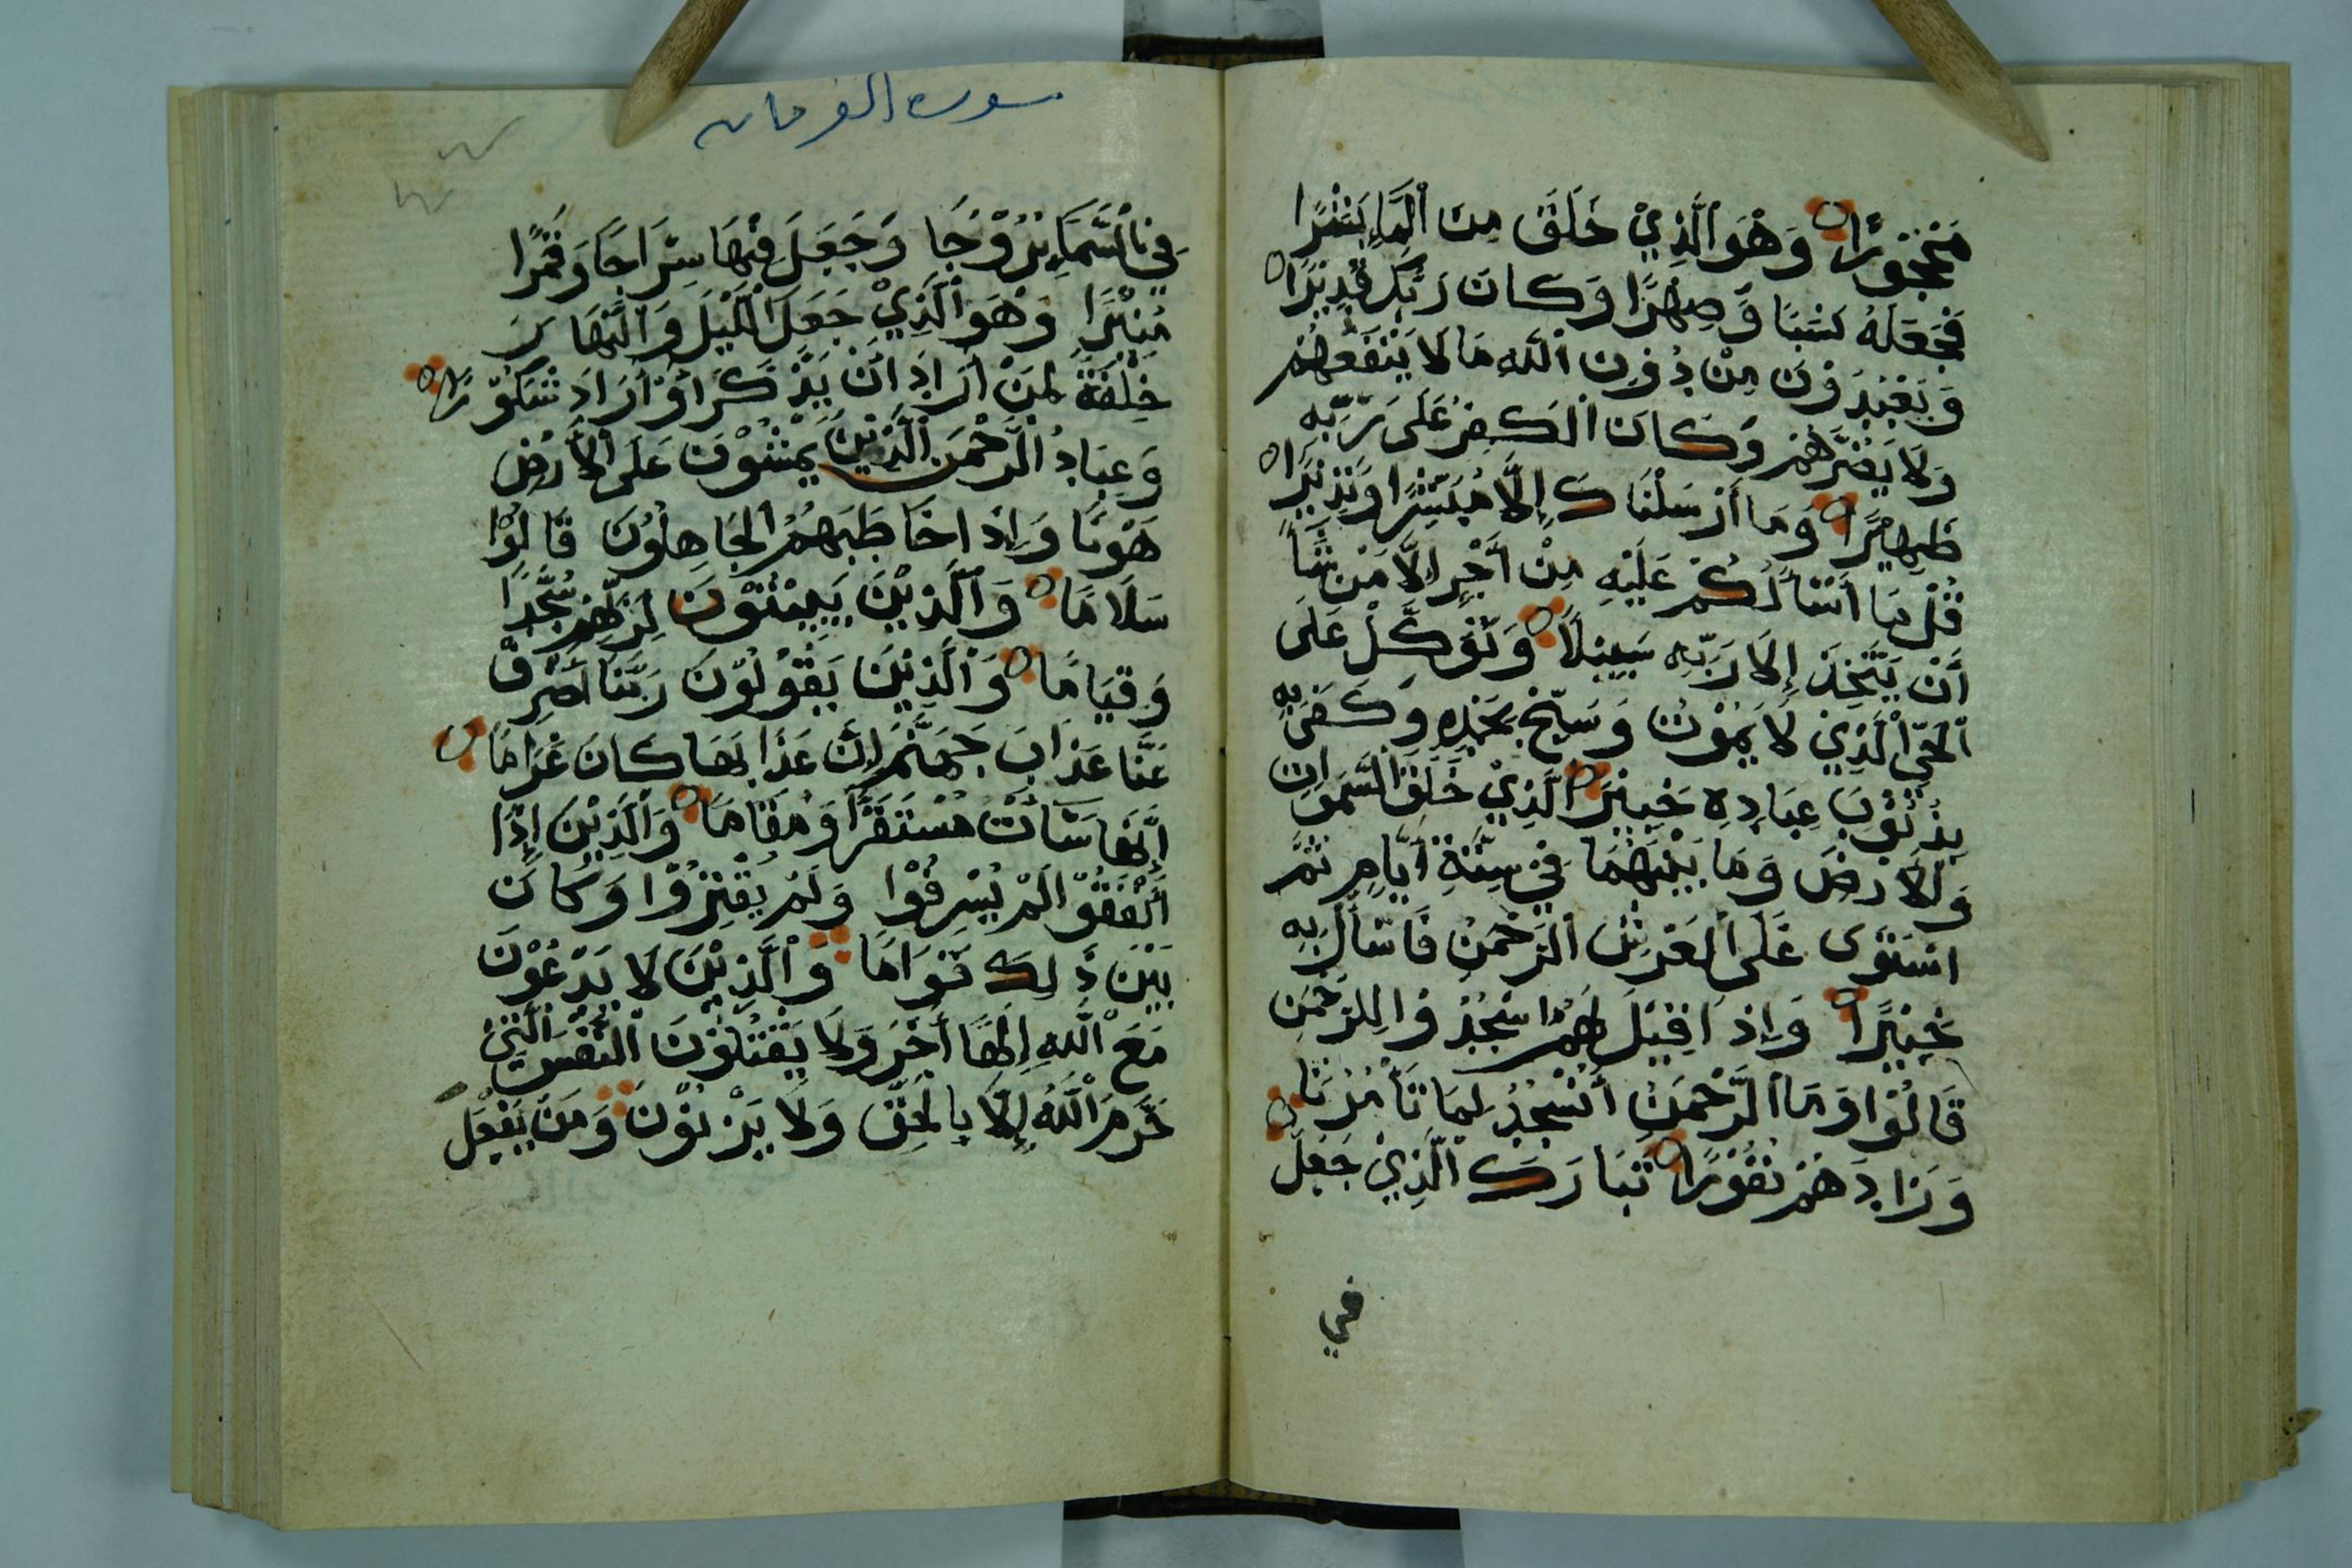 مَحْجُوْرًا وَهُوَ الَّذِيْ خَلَقَ مِنَ الْمَاءِ بَشَرًا
فَجَعَلَهُ نَسَبًا وَّصِهْرًا وَكَانَ رَبُّكَ قَدِيْرًا
وَيَعْبُدُوْنَ مِنْ دُوْنِ اللّٰهِ مَا لَا يَنْفَعُهُمْ
وَلَا يَضُرُّهُمْ وَكَانَ الْكٰفِرُ عَلٰى رَبِّهِ
ظَهِيْرًا وَمَا أَرْسَلْنَاكَ إِلَّا مُبَشِّرًا وَنَذِيْرًا
قُلْ مَا أَسْأَلُكُمْ عَلَيْهِ مِنْ أَجْرٍ إِلَّا مَنْ شَاءَ
أَنْ يَتَّخِذَ إِلَى رَبِّهِ سَبِيْلًا وَتَوَكَّلْ عَلَى
الْحَيِّ الَّذِيْ لَا يَمُوْتُ وَسَبِّحْ بِحَمْدِهِ وَكَفٰى بِهِ
بِذُنُوْبِ عِبَادِهِ خَبِيْرًا الَّذِيْ خَلَقَ السَّمٰوَاتِ
وَالْأَرْضَ وَمَا بَيْنَهُمَا فِيْ سِتَّةِ أَيَّامٍ ثُمَّ
اسْتَوٰى عَلَى الْعَرْشِ الرَّحْمٰنُ فَاسْأَلْ بِهِ
خَبِيْرًا وَإِذَا قِيْلَ لَهُمُ اسْجُدُوْا لِلرَّحْمٰنِ
قَالُوْا وَمَا الرَّحْمٰنُ أَنَسْجُدُ لِمَا تَأْمُرُنَا
وَزَادَهُمْ نُفُوْرًا تَبَارَكَ الَّذِيْ جَعَلَ
في
سورة الفرقان
فِي السَّمَاءِ بُرُوْجًا وَجَعَلَ فِيْهَا سِرَاجًا وَقَمَرًا
مُنِيْرًا وَهُوَ الَّذِيْ جَعَلَ اللَّيْلَ وَالنَّهَارَ
خِلْفَةً لِمَنْ أَرَادَ أَنْ يَذَّكَّرَ أَوْ أَرَادَ شُكُوْرًا
وَعِبَادُ الرَّحْمٰنِ الَّذِيْنَ يَمْشُوْنَ عَلَى الْأَرْضِ
هَوْنًا وَإِذَا خَاطَبَهُمُ الْجَاهِلُوْنَ قَالُوْا
سَلَامًا وَالَّذِيْنَ يَبِيْتُوْنَ لِرَبِّهِمْ سُجَّدًا
وَقِيَامًا وَالَّذِيْنَ يَقُوْلُوْنَ رَبَّنَا اصْرِفْ
عَنَّا عَذَابَ جَهَنَّمَ إِنَّ عَذَابَهَا كَانَ غَرَامًا
إِنَّهَا سَاءَتْ مُسْتَقَرًّا وَمُقَامًا وَالَّذِيْنَ إِذَا
أَنْفَقُوْا لَمْ يُسْرِفُوْا وَلَمْ يَقْتُرُوْا وَكَانَ
بَيْنَ ذٰلِكَ قَوَامًا وَالَّذِيْنَ لَا يَدْعُوْنَ
مَعَ اللّٰهِ إِلٰهًا أٰخَرَ وَلَا يَقْتُلُوْنَ النَّفْسَ الَّتِيْ
حَرَّمَ اللّٰهُ إِلَّا بِالْحَقِّ وَلَا يَزْنُوْنَ وَمَنْ يَفْعَلْ